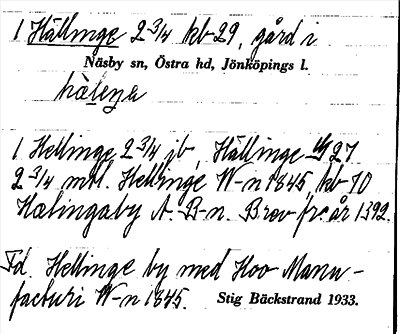 1 Hällinge 2 3/4 kb 29, gård i
Näsby sn, Östra hd, Jönköpings l.
1 Hellinge 2 3/4 jb, Hällinge 27
2 3/4 mtl. Hellinge W-n 1845, kb 70
Hælingaby A-B-n. Brev fr. år 1392.
Td. Hellinge by med Hoo Manu-
facturi W-n 1845. Stig Bäckstrand 1933.